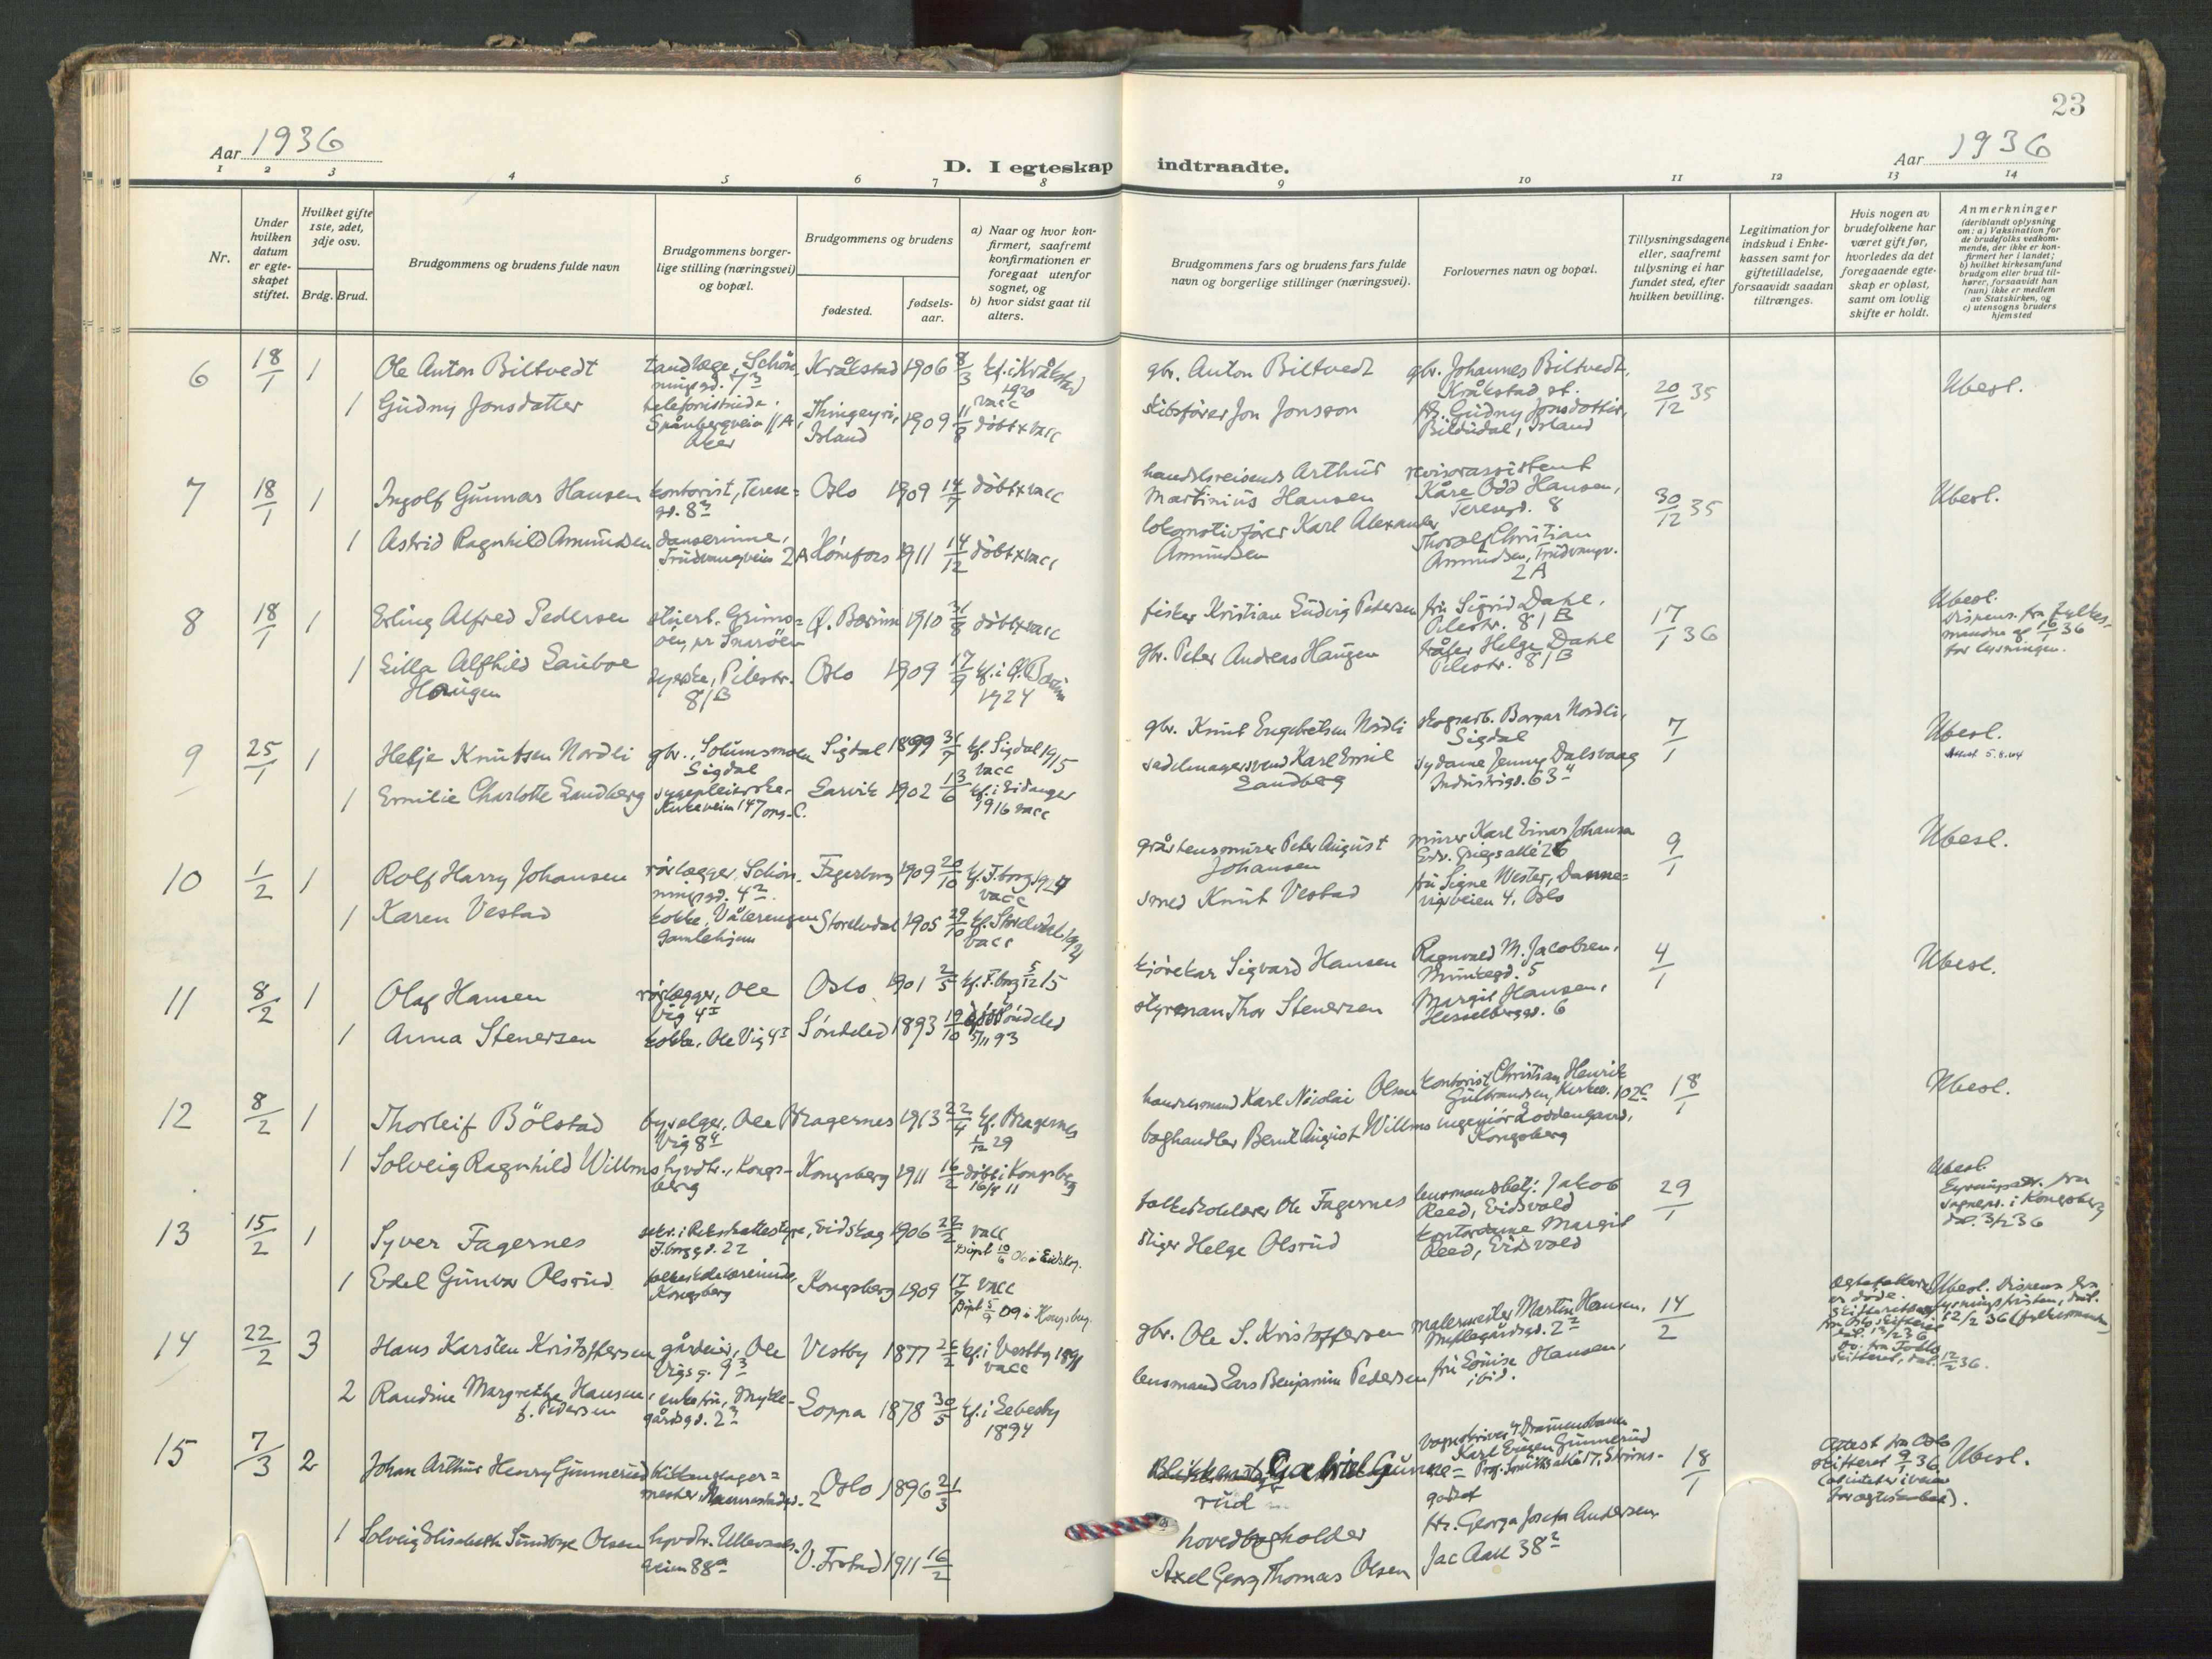 23
Aar 1936
D. I egteskap indtraadte.
Aar 1936
1 2 3 4 5 6 7 8 9 10 11 12 13 14
Nr.
Under
hvilken
datum
er egte-
skapet
stiftet.
Hvilket gifte
1ste, 2det,
3dje osv.
Brdg. Brud.
Brudgommens og brudens fulde navn
Brudgommens borger-
lige stilling (næringsvei)
og bopæl.
Brudgommens og brudens
fødested.
fødsels-
aar.
a) Naar og hvor kon-
firmert, saafremt
konfirmationen er
foregaat utenfor
sognet, og
b) hvor sidst gaat til
alters.
Brudgommens fars og brudens fars fulde
navn og borgerlige stillinger (næringsvei).
Forlovernes navn og bopæl.
Tillysningsdagene
eller, saafremt
tillysning ei har
fundet sted, efter
hvilken bevilling.
Legitimation for
indskud i Enke-
kassen samt for
giftetilladelse,
forsaavidt saadan
tiltrænges.
Hvis nogen av
brudefolkene har
været gift før,
hvorledes da det
foregaaende egte-
skap er opløst,
samt om lovlig
skifte er holdt.
Anmerkninger
(deriblandt oplysning
om: a) Vaksination for
de brudefolks vedkom-
mende, der ikke er kon-
firmert her i landet;
b) hvilket kirkesamfund
brudgom eller brud til-
hører, forsaavidt han
(hun) ikke er medlem
av Statskirken, og
c) utensogns bruders
hjemsted
6 18/1 1 Ole Anton Biltvedt tandlæge, Schøn-
ningsgd. 7³ Kråkstad 1906 8/3 kf. i Kråkstad
1920
vacc
gbr. Anton Biltvedt gbr. Johannes Biltvedt,
Kråkstad st. 20/12 35 Ubesl.
1 Gudny Jonsdatter telefonistinde,
11 A,
Aker Thingeyri,
Island 1909 11/8 döbt + vacc
skibsfører Jon Jonsson frk. Gudny Jonsdottir,
Bildudal, Island
7 18/1 1 Ingolf Gunnar Hansen kontorist, Terese-
gd. 8³ Oslo 1909 14/7 döbt + vacc
handelsreisende Arthur
Martinius Hansen revisorassistent
Kåre Odd Hansen,
Teresegd. 8 30/12 35 Ubesl.
1 Astrid Ragnhild Amundsen danserinne,
Trudvangveien 2A Hönefoss 1911 14/12 döbt + vacc
lokomotivfører Karl Alexander
Amundsen Thoralf Christian
Amundsen, Trudvangv.
2A
8 18/1 1 Erling Alfred Pedersen Grims-
öen, pr Snaröen Ö. Bærum 1910 31/8 döbt + vacc
fisker Kristian Ludvig Pedersen fru Sigrid Dahl,
Pilestr. 81B 17/1 36 Ubesl.
Dispens. fra fylkes-
manden af 16/1 36
for lysningen.
1 Lilla Alfhild Lauboe
Haugen syerske, Pilestr.
81B Oslo 1909 17/9 kf. i Ö. Bærum
1924
gbr. Peter Andreas Haugen Helge Dahl
Pilestr. 81B
9 25/1 1 Helje Knutsen Nordli gbr., Solumsmoen
Sigdal Sigdal 1899 31/7 kf. Sigdal 1915
vacc
gbr. Knut Engebretsen Nordli skogsarb. Borgar Nordli,
Sigdal 7/1 Ubesl.
Attest 5.8.44
1 Emilie Charlotte Landberg sygepleierske,
Kirkeveien 147 Larvik 1902 13/6 kf. i Eidanger
1916 vacc
sadelmagersvend Karl Emil
Landberg sydame Jenny Dalsvaag
Industrigd. 63⁴
10 1/2 1 Rolf Harry Johansen rörlægger, Schøn-
ningsgd. 4² Fagerborg 1909 20/10 kf. F.borg 1924
vacc
gråstensmurer Peter August
Johansen murer Karl Einar Johansen
Edv. Griegs allé 26 9/1 Ubesl.
1 Karen Vestad kokke, Vålerengen
Gamlehjem Storelvdal 1905 29/10 kf. Storelvdal 1921
vacc
smed Knut Vestad fru Signe Wester, Danne-
vigsveien 4, Oslo
11 8/2 1 Olaf Hansen rörlægger, Ole
Vig 4¹ Oslo 1901 2/5 kf. F.borg 5/12 15
kjörekar Sigvard Hansen Ragnvald M. Jacobsen,
Munkegd. 5 4/1 Ubesl.
1 Anna Stenersen kokke, Ole Vig 4¹ Söndeled 1893 19/10 döbt Söndeled
5/11 93
styrman Thor Stenersen Margit Hansen,
Hesselbergsgd. 6
12 8/2 1 Thorleif Bölstad byselger, Ole
Vig 8⁴ Bragernes 1913 22/4 kf. Bragernes
1/12 29
handelsmand Karl Nicolai Olsen kontorist Christian Henrik
Gulbrandsen, Kirkev. 102c 18/1 Ubesl.
1 Solveig Ragnhild Willms husdtr., Kongs-
berg Kongsberg 1911 16/2 döbt i Kongsberg
16/4 11
boghandler Bernt August Willms ingeniör Loddengaard,
Kongsberg
Ubesl.
Lysningsatt. fra
sognepr. i Kongsberg
dat. 3/2 36
13 15/2 1 Syver Fagernes sekr. i Riksskattestyre,
F.borggd. 22 Eidskog 1906 22/2 vacc
Döpt 10/6 06 i Eidskog.
folkeskolelærer Ole Fagernes lensmandsbetj. Jakob
Reed, Eidsvold 29/1
1 Edel Gunvor Olsrud folkeskolelærerinde,
Kongsberg Kongsberg 1909 17/7 vacc
Döpt 5/9 09 i Kongsberg.
stiger Helge Olsrud kontordame Margit
Reed, Eidsvold
14 22/2 3 Hans Karsten Kristoffersen gårdeier, Ole
Vigsg. 9³ Vestby 1877 26/2 kf. i Vestby 1891
vacc
gbr. Ole S. Kristoffersen malermester Martin Hansen,
Myklegårdsgd. 2² 14/2 Ægtefællerne
er döde.
Skifteattest
fra Oslo skifteret
dat. 12/2 36
skifteret, dat. 12/2 36.
Ubesl. Dispens. fra
lysningsfristen, dat.
12/2 36 (fylkesmanden)
2 Randine Margrethe Hansen,
f. Pedersen enkefru, Mykle-
gårdsgd. 2² Loppa 1878 30/5 kf. i Lebesby
1894
lensmand Lars Benjamin Pedersen fru Louise Hansen,
ibid.
15 7/3 2 Johan Arthur Henry Gunnerud blikkenslager-
mester, Oslo 1896 21/3
Gabriel Gunne-
rud Vognskriver v. Drammensbanen
Karl Eugen Gunnerud
Prof. Smiths allé 17, Ströms-
godset 18/1 Attest fra Oslo
skifteret 9/1 36
Ubesl.
1 Solveig Elisabeth Sundbye Olsen husdtr. Ullevaals-
veien 88a V. Frstad 1911 16/2
hovedbogholder
Axel Georg Thomas Olsen frk. Georga Josefa Andersen
Jac Aall 38²